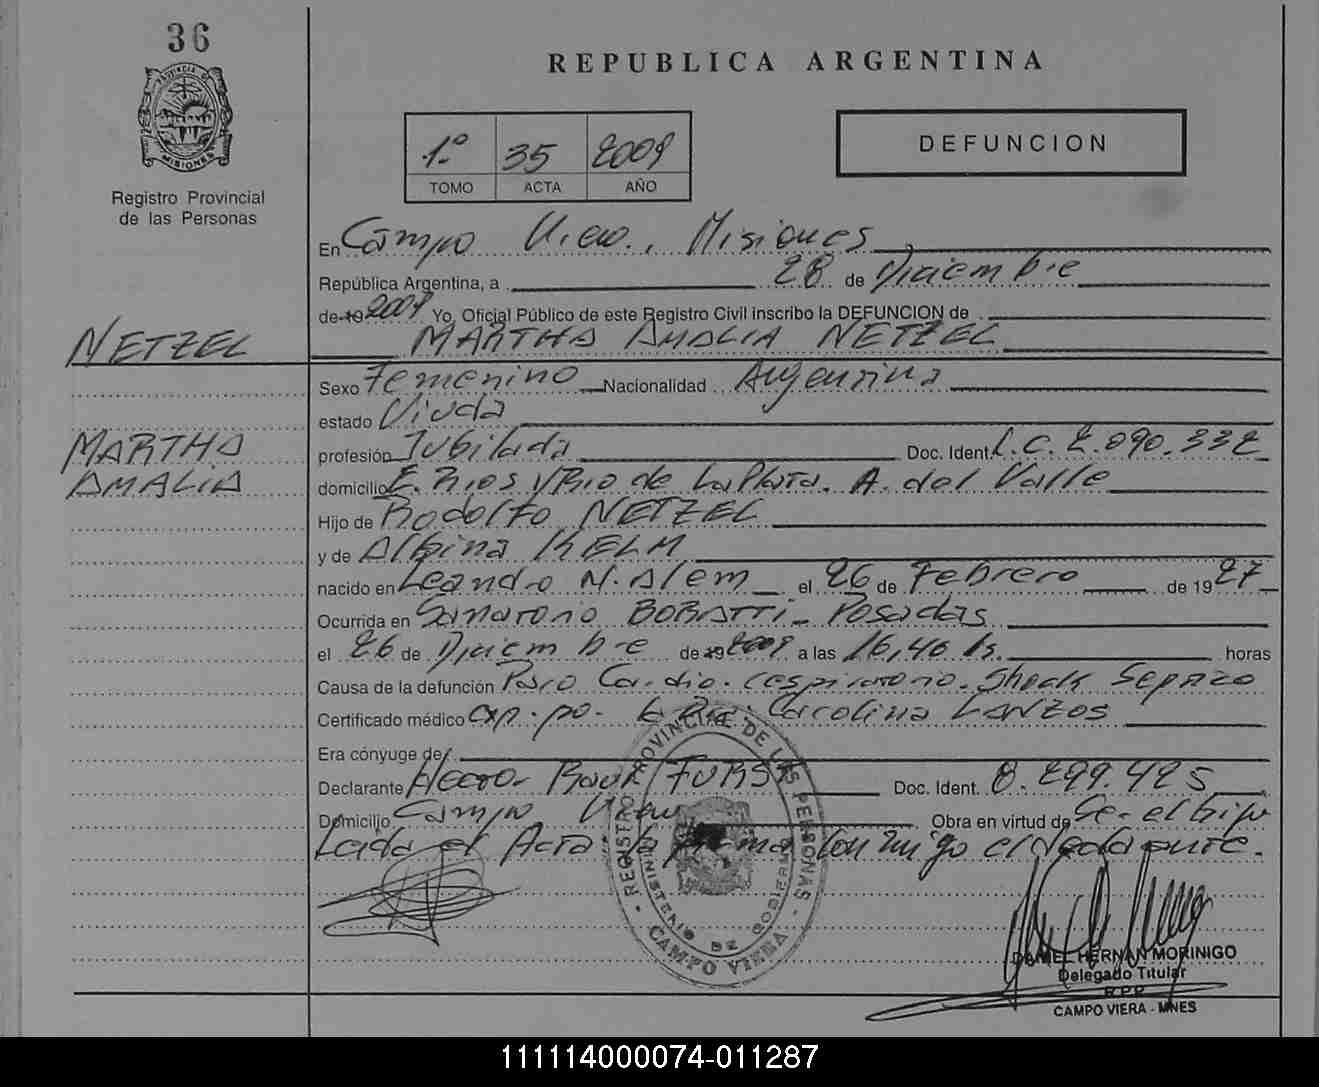 36
PROVINCIA DE
MISIONES
Registro Provincial
de las Personas
REPUBLICA ARGENTINA
1º 35 2009
TOMO ACTA AÑO
DEFUNCION
En Campo Viera, Misiones
República Argentina, a 28 de Diciembre
de 19 2009 Yo, Oficial Público de este Registro Civil inscribo la DEFUNCION de
NETZEL MARTHA AMALIA NETZEL
Sexo Femenino Nacionalidad Argentina
estado Viuda
MARTHA profesión Jubilada Doc. Ident. L.C. 2.090.332
AMALIA domicilio E. Rios y Rio de La Plata. A. del Valle
Hijo de Rodolfo NETZEL
y de Albina KELM
nacido en Leandro N. Alem el 26 de Febrero de 1927
Ocurrida en Sanatorio BORATTI - Posadas
el 26 de Diciembre de 19 2009 a las 16,40 hs. horas
Causa de la defunción Paro Cardio-respiratorio. Shock Septico
Certificado médico exp. po. la Dra. Carolina LANZOS
Era cónyuge de
Declarante Hector Raul FURST Doc. Ident. 8.299.425
Domicilio Campo Viera Obra en virtud de Se. el hijo
Leida el Acta la firma conmigo el declarante.
REGISTRO PROVINCIAL DE LAS PERSONAS
MINISTERIO DE GOBIERNO
CAMPO VIERA
DANIEL HERNAN MORINIGO
Delegado Titular
R.P.P.
CAMPO VIERA - MNES
111114000074-011287